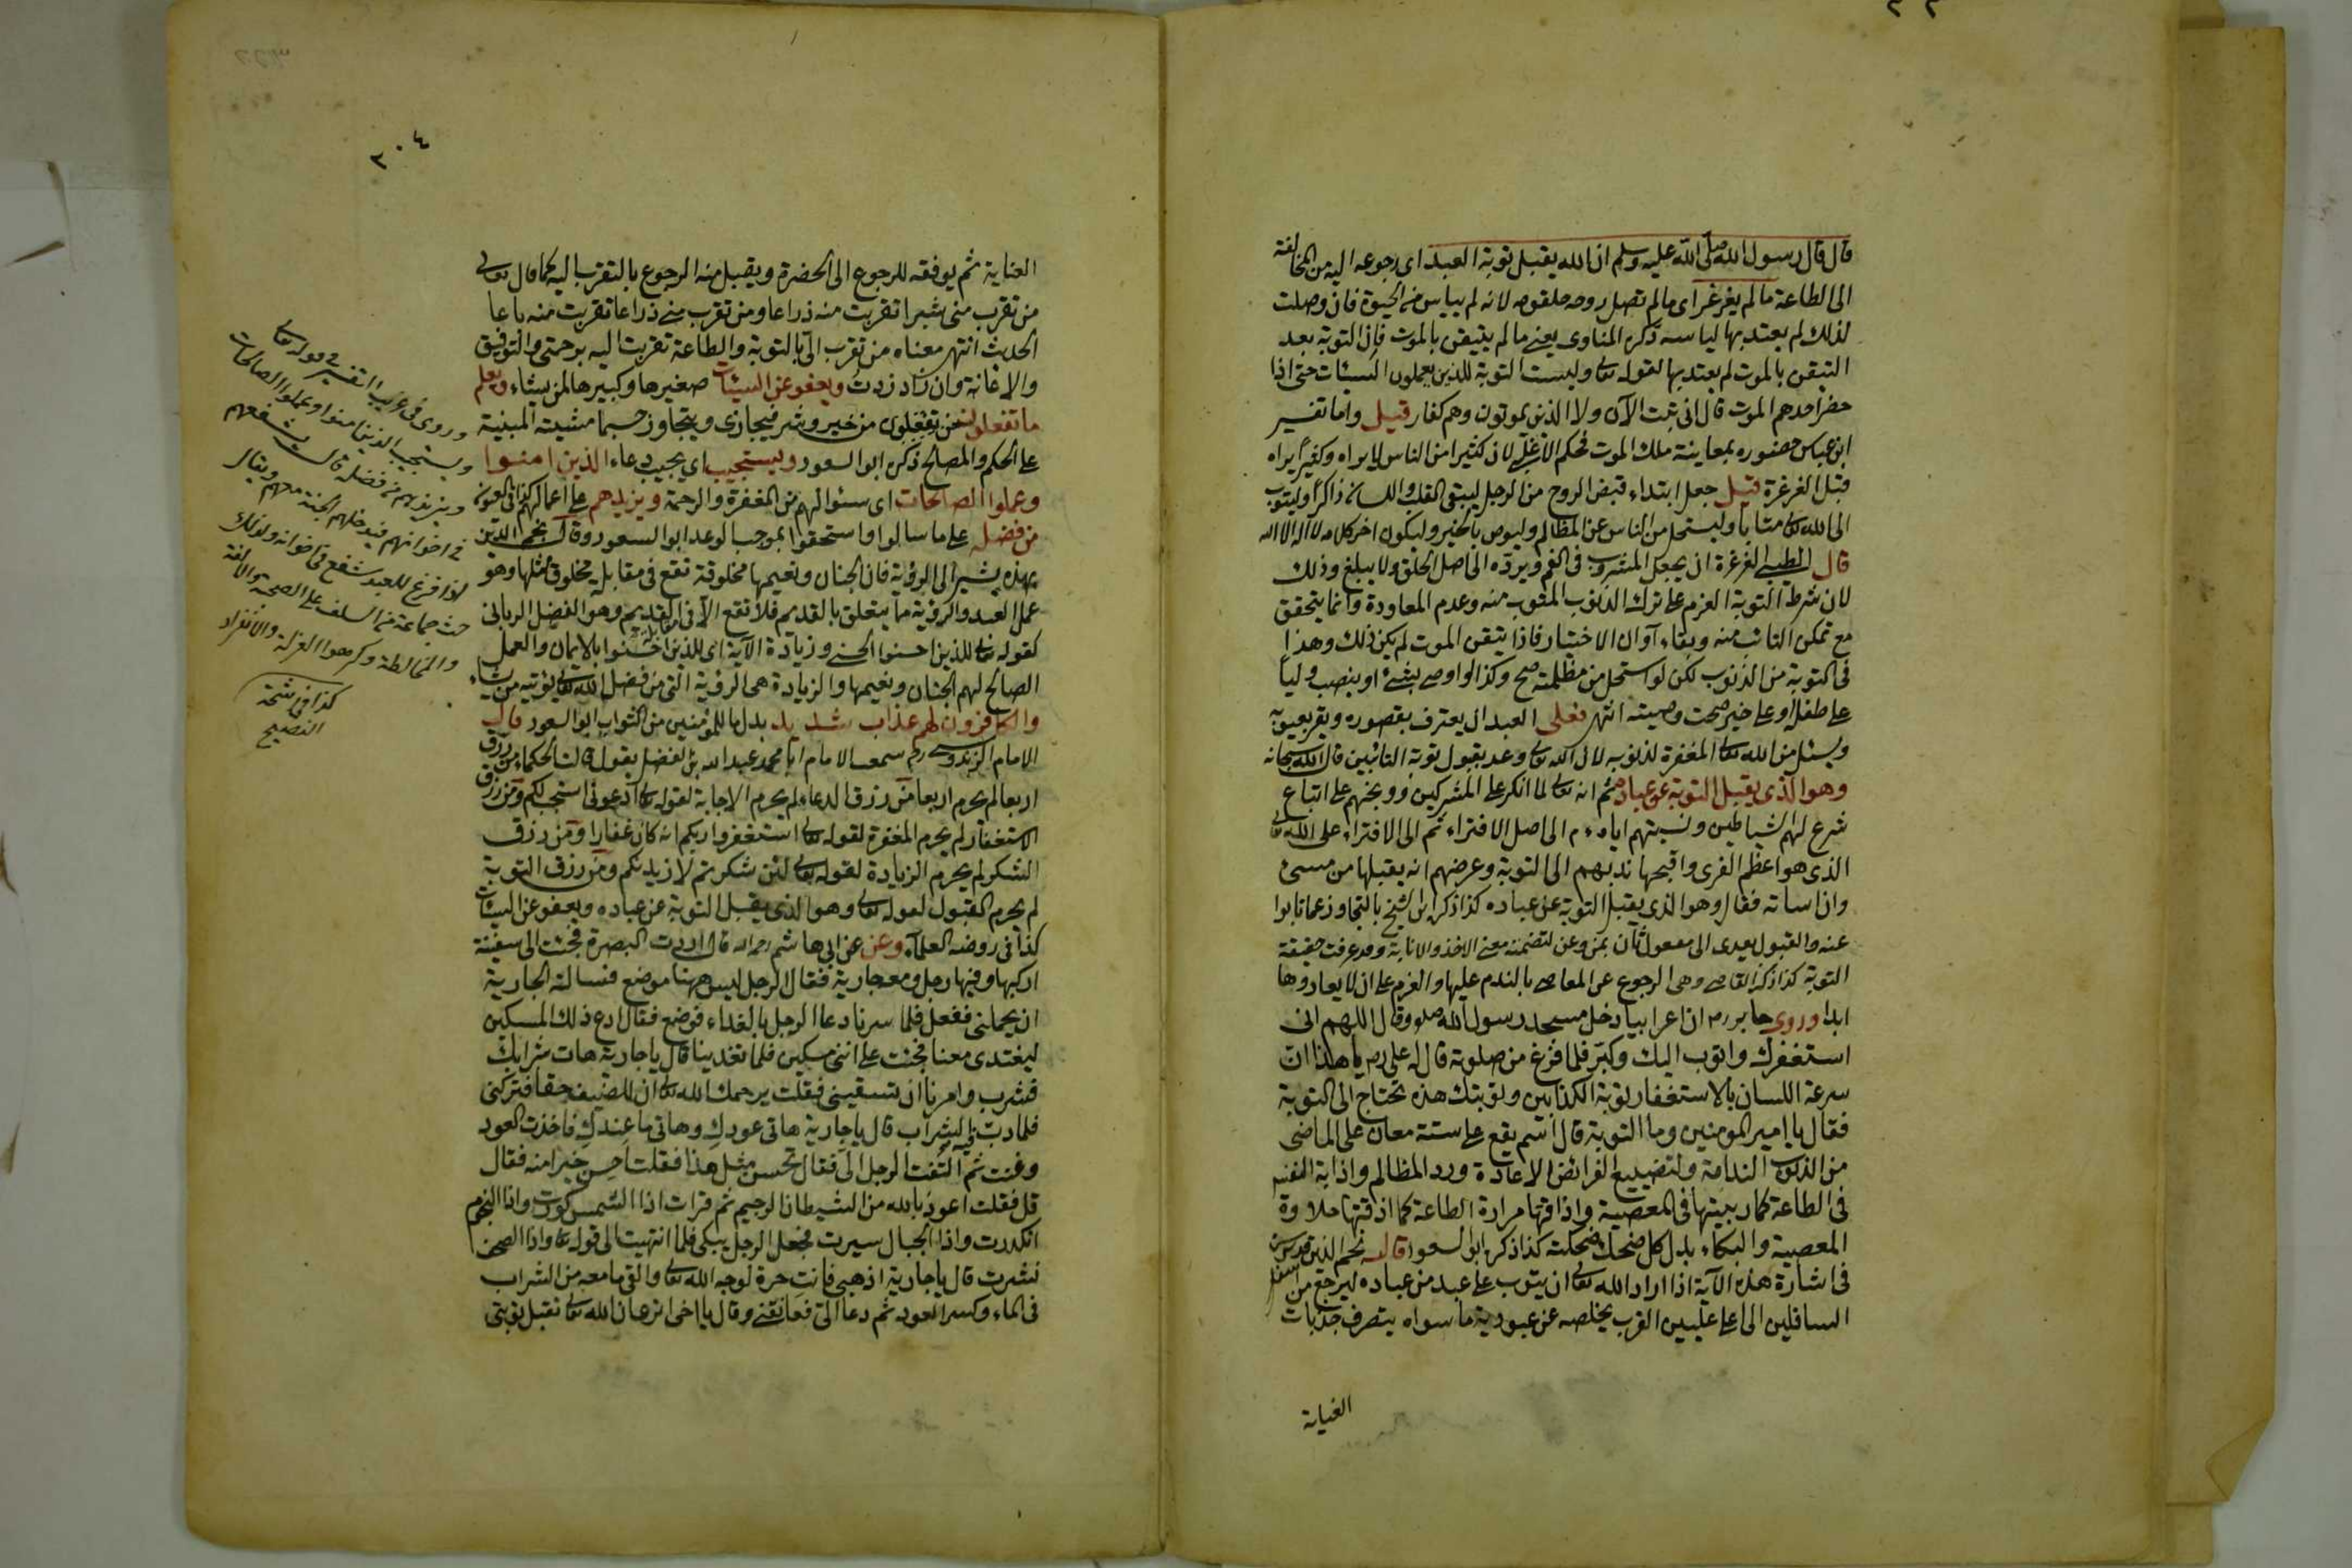 قال قال رسول الله صلى الله عليه وسلم ان الله يقبل توبة العبد اى رجوعه اليه من المخالفة
الى الطاعة ما لم يغرغر اى ما لم تصل روحه حلقومه لانه لم ييأس من الحيوة فان وصلت
لذلك لم يعتد بها لياسه ذكره المناوى يعنى ما لم يتيقن بالموت فان التوبة بعد
التيقن بالموت لم يعتد بها لقوله تعالى وليست التوبة للذين يعملون السيئات حتى اذا
حضر احدهم الموت قال انى تبت الآن ولا الذين يموتون وهم كفار قيل واما تفسير
ابن عباس حضوره بمعاينة ملك الموت فحكم الاغلبى لان كثيرا من الناس لا يراه وكثيرا يراه
قبل الغرغرة قيل جعل ابتداء قبض الروح من الرجل ليبقى القلب واللسان ذاكرا وليتوب
الى الله تعالى متابا وليستحل من الناس عن المظالم وليوص بالخير وليكون اخر كلامه لا اله الا الله
قال الطيبى الغرغرة ان يجعل المشروب فى الفم ويردّه الى اصل الحلق ولا يبلغ وذلك
لان شرط التوبة العزم على ترك الذنوب المتوب منه وعدم المعاودة وانما يتحقق
مع تمكن التائب منه وبقاء آوان الاختيار فاذا تيقن الموت لم يكن ذلك وهذا
فى التوبة من الذنوب لكن لو استحل من مظلمة صح وكذا لو اوصى بشئ او ينصب وليا
على طفله او على خير صحت وصيته انتهى فعلى العبد ان يعترف بقصوره ويقر بعيوبه
ويسئل من الله تعالى المغفرة لذنوبه لان الله تعالى وعد بقبول توبة التائبين قال الله سبحانه
وهو الذى يقبل التوبة عن عباده ثم انه تعالى لما انكر على المشركين ووبخهم على اتباع
شرع لهم الشياطين ونسبتهم اياه الى اصل الافتراء ثم الى الافتراء على الله تعالى
الذى هو اعظم الفرى واقبحها ندبهم الى التوبة وعرضهم انه يقبلها من مسئ
وان اساته فقال وهو الذى يقبل التوبة عن عباده كذا ذكر ابن الشيخ بالتجاوز عما تابوا
عنه والقبول يعدى الى مفعول ثان بمن وعن لتضمنه معنى الاخذ والابانة وقد عرفت حقيقة
التوبة كذا ذكر القاضى وهى الرجوع عن المعاصى بالندم عليها والعزم على ان لا يعاودها
ابدا وروى جابر رض ان اعرابيا دخل مسجد رسول الله صلعم وقال اللهم انى
استغفرك واتوب اليك وكبّر فلما فرغ من صلوته قال له على رض يا هذا ان
سرعة اللسان بالاستغفار توبة الكذابين وتوبتك هذه تحتاج الى التوبة
فقال يا امير المومنين وما التوبة قال اسم يقع على ستة معان على الماضى
من الذنوب الندامة ولتضييع الفرائض الاعادة ورد المظالم واذابة النفس
فى الطاعة كما ربيتها فى المعصية واذاقتها مرارة الطاعة كما اذقتها حلاوة
المعصية والبكاء بدل كل ضحك ضحكته كذا ذكر ابو السعود قال نجم الدين قدس سره
فى اشارة هذه الآية اذا اراد الله تعالى ان يتوب على عبد من عباده ليرجع من اسفل
السافلين الى اعلى عليين القرب يخلصه عن عبودية ما سواه بتصرف جذبات
٢٠٤
العناية ثم يوفقه للرجوع الى الحضرة ويقبل منه الرجوع بالتقرب اليه كما قال تعالى
من تقرب منى شبرا تقربت منه ذراعا ومن تقرب منى ذراعا تقربت منه باعا
الحديث انتهى معناه من تقرب الىّ بالتوبة والطاعة تقربت اليه برحمتى والتوفيق
والاعانة وان زاد زدتُ ويعفو عن السيئات صغيرها وكبيرها لمن يشاء ويعلم
ما تفعلون من خير وشر فيجازى ويتجاوز حسبما مشيته المبنية
على الحكم والمصالح ذكره ابو السعود ويستجيب اى يجيب دعاء الذين امنوا
وعملوا الصالحات اى سئوالهم من المغفرة والرحمة ويزيدهم على اعمالهم كذا فى العيون
من فضله على ما سالوا واستحقوا بموجب الوعد ابو السعود وقال نجم الدين
بهذه يشير الى الرؤية فان الجنان ونعيمها مخلوقة تقع فى مقابلة مخلوق مثلها وهو
عمل العبد والرؤية ما يتعلق بالقديم فلا تقع الا فى القديم وهو الفضل الربانى
كقوله تعالى للذين احسنوا الحسنى وزيادة الآية اى للذين احسنوا بالايمان والعمل
الصالح لهم الجنان ونعيمها والزيادة هى الرؤية التى من فضل الله تعالى يؤتيه من يشاء
والكافرون لهم عذاب شديد بدل ما للمؤمنين من الثواب ابو السعود قال
الامام الزندوستى رح سمعت الامام ابا محمد عبد الله بن الفضل يقول قالت الحكماء من رزق
اربعا لم يحرم اربعا من رزق الدعاء لم يحرم الاجابة لقوله تعالى ادعونى استجب لكم ومن رزق
الاستغفار لم يحرم المغفرة لقوله تعالى استغفروا ربكم انه كان غفارا ومن رزق
الشكر لم يحرم الزيادة لقوله تعالى لئن شكرتم لازيدنكم ومن رزق التوبة
لم يحرم القبول لقوله تعالى وهو الذى يقبل التوبة عن عباده ويعفو عن السيئات
كذا فى روضة العلماء وعن عن ابى هاشم رحمه الله قال اردت البصرة فجئت الى سفينة
اركبها وفيها رجل ومعه جارية فقال الرجل ليس ههنا موضع فسالته الجارية
ان يحملنى ففعل فلما سرنا دعا الرجل بالغداء فوضع فقال ادع ذلك المسكين
ليغتدى معنا فجئت على اننى مسكين فلما تغدينا قال يا جارية هات شرابك
فشرب وامرنا ان تسقينى فقلت يرحمك الله تعالى ان للضيف حقا فتركنى
فلما دبّ فيه الشراب قال يا جارية هاتى عودك وهاتى ما عندك فاخذت العود
وغنت ثم التفت الرجل الىّ فقال تحسن مثل هذا فقلت احسن خيرا منه فقال
قل فقلت اعوذ بالله من الشيطان الرجيم ثم قرات اذا الشمس كورت واذا النجوم
انكدرت واذا الجبال سيرت فجعل الرجل يبكى فلما انتهيت الى قوله تعالى واذا الصحف
نشرت قال يا جارية اذهبى فانت حرة لوجه الله تعالى والقى ما معه من الشراب
فى الماء وكسر العود ثم دعا الىّ فعانقنى وقال يا اخى اترى ان الله تعالى تقبل توبتى
وروى فى غريب التفسير فى قوله تعالى
ويستجيب الذين امنوا وعملوا الصالحات
ويزيدهم من فضله قال يشفعهم
فى اخوانهم فيدخلهم الجنة معهم ويقال
اذا فرغ للعبد شفع فى اخوانه ولذلك
حث جماعة من السلف على الصحبة والالفة
والمخالطة وكرهوا العزلة والانفراد
كذا فى